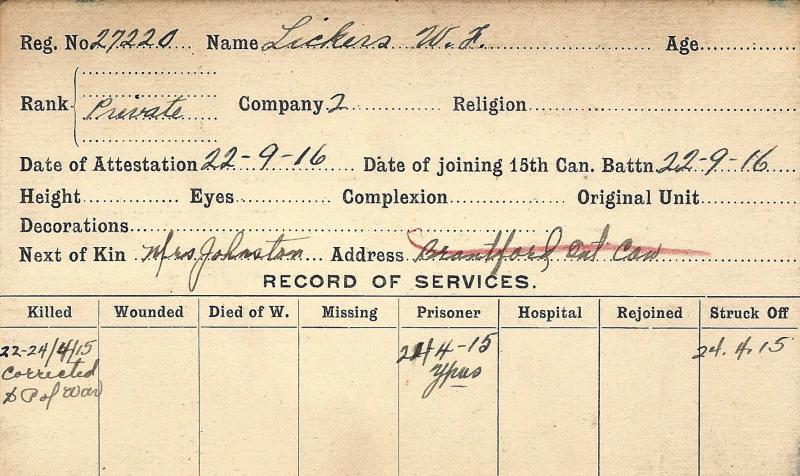 Reg. No 27220 Name Lickers W. F. Age
Rank Private Company 2 Religion
Date of Attestation 22-9-16 Date of joining 15th Can. Battn 22-9-16
Height Eyes Complexion Original Unit
Decorations
Next of Kin Mrs Johnston Address Brantford, Ont Can
RECORD OF SERVICES.
Killed Wounded Died of W. Missing Prisoner Hospital Rejoined Struck Off
22-24/4/15 24 4-15 24.4.15
Corrected Ypres
to P of War